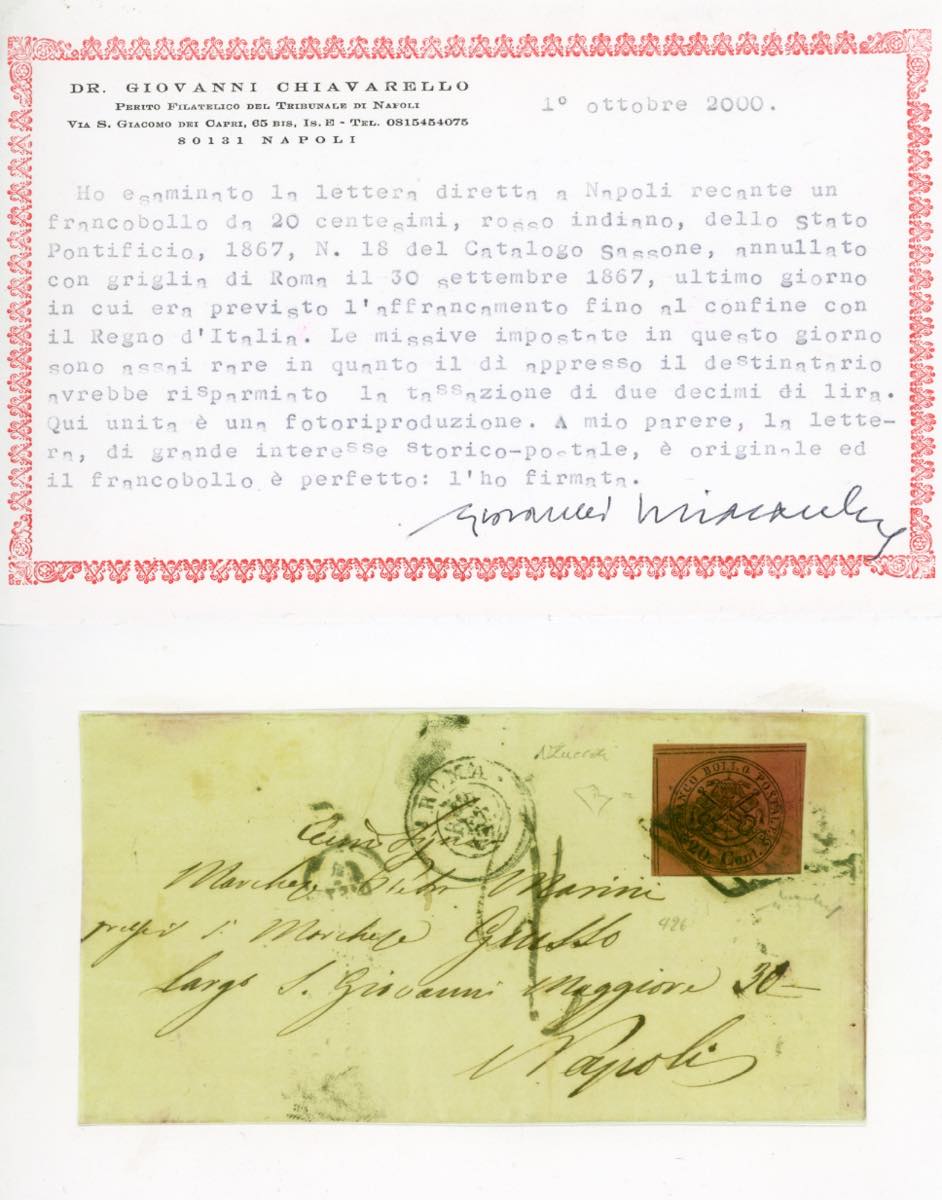 DR. GIOVANNI CHIAVARELLO
PERITO FILATELICO DEL TRIBUNALE DI NAPOLI
VIA S. GIACOMO DEI CAPRI, 65 BIS, IS. E - TEL. 0815454075
80131 NAPOLI
1° ottobre 2000.
Ho esaminato la lettera diretta a Napoli recante un
francobollo da 20 centesimi, rosso indiano, dello Stato
Pontificio, 1867, N. 18 del Catalogo Sassone, annullato
con griglia di Roma il 30 settembre 1867, ultimo giorno
in cui era previsto l'affrancamento fino al confine con
il Regno d'Italia. Le missive impostate in questo giorno
sono assai rare in quanto il dì appresso il destinatario
avrebbe risparmiato la tassazione di due decimi di lira.
Qui unita è una fotoriproduzione. A mio parere, la lette-
ra, di grande interesse storico-postale, è originale ed
il francobollo è perfetto: l'ho firmata.
ROMA
FRANCO BOLLO POSTALE
20 Cent.
Marchese Marini
Marchese Giusso
Largo S. Giovanni Maggiore 30
496
Napoli